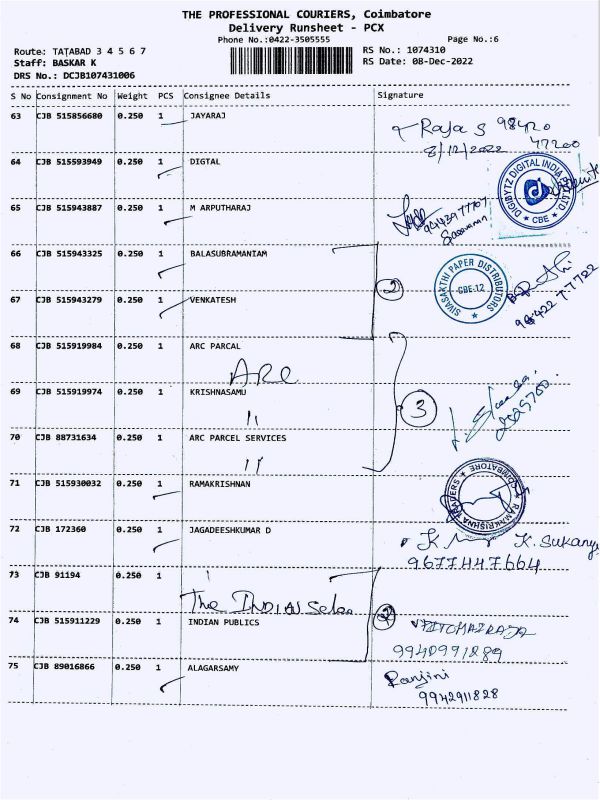 THE PROFESSIONAL COURIERS, Coimbatore
Delivery Runsheet - PCX
Phone No.:0422-3505555 Page No.:6
Route: TATABAD 3 4 5 6 7 RS No.: 1074310
Staff: BASKAR K RS Date: 08-Dec-2022
DRS No.: DCJB107431006
S No Consignment No Weight PCS Consignee Details Signature
63 CJB 515856680 0.250 1 JAYARAJ
Raja S 98420
47200
8/12/2022
64 CJB 515593949 0.250 1 DIGTAL
DIGIBYTZ DIGITAL INDIA PVT.LTD.
CBE
65 CJB 515943887 0.250 1 M ARPUTHARAJ
9443977707
Saravanan
66 CJB 515943325 0.250 1 BALASUBRAMANIAM
2
SIVASAKTHI PAPER DISTRIBUTORS
CBE-12
67 CJB 515943279 0.250 1 VENKATESH
98422 77722
68 CJB 515919984 0.250 1 ARC PARCAL
ARC
69 CJB 515919974 0.250 1 KRISHNASAMU
"
3
70 CJB 88731634 0.250 1 ARC PARCEL SERVICES
"
71 CJB 515930032 0.250 1 RAMAKRISHNAN
RAMAKRISHNA TRADERS
COIMBATORE
72 CJB 172360 0.250 1 JAGADEESHKUMAR D
K. Sukanya
9677447664
73 CJB 91194 0.250 1
The INDIAN
2
74 CJB 515911229 0.250 1 INDIAN PUBLICS
9940991289
75 CJB 89016866 0.250 1 ALAGARSAMY
Ranjini
9942911828